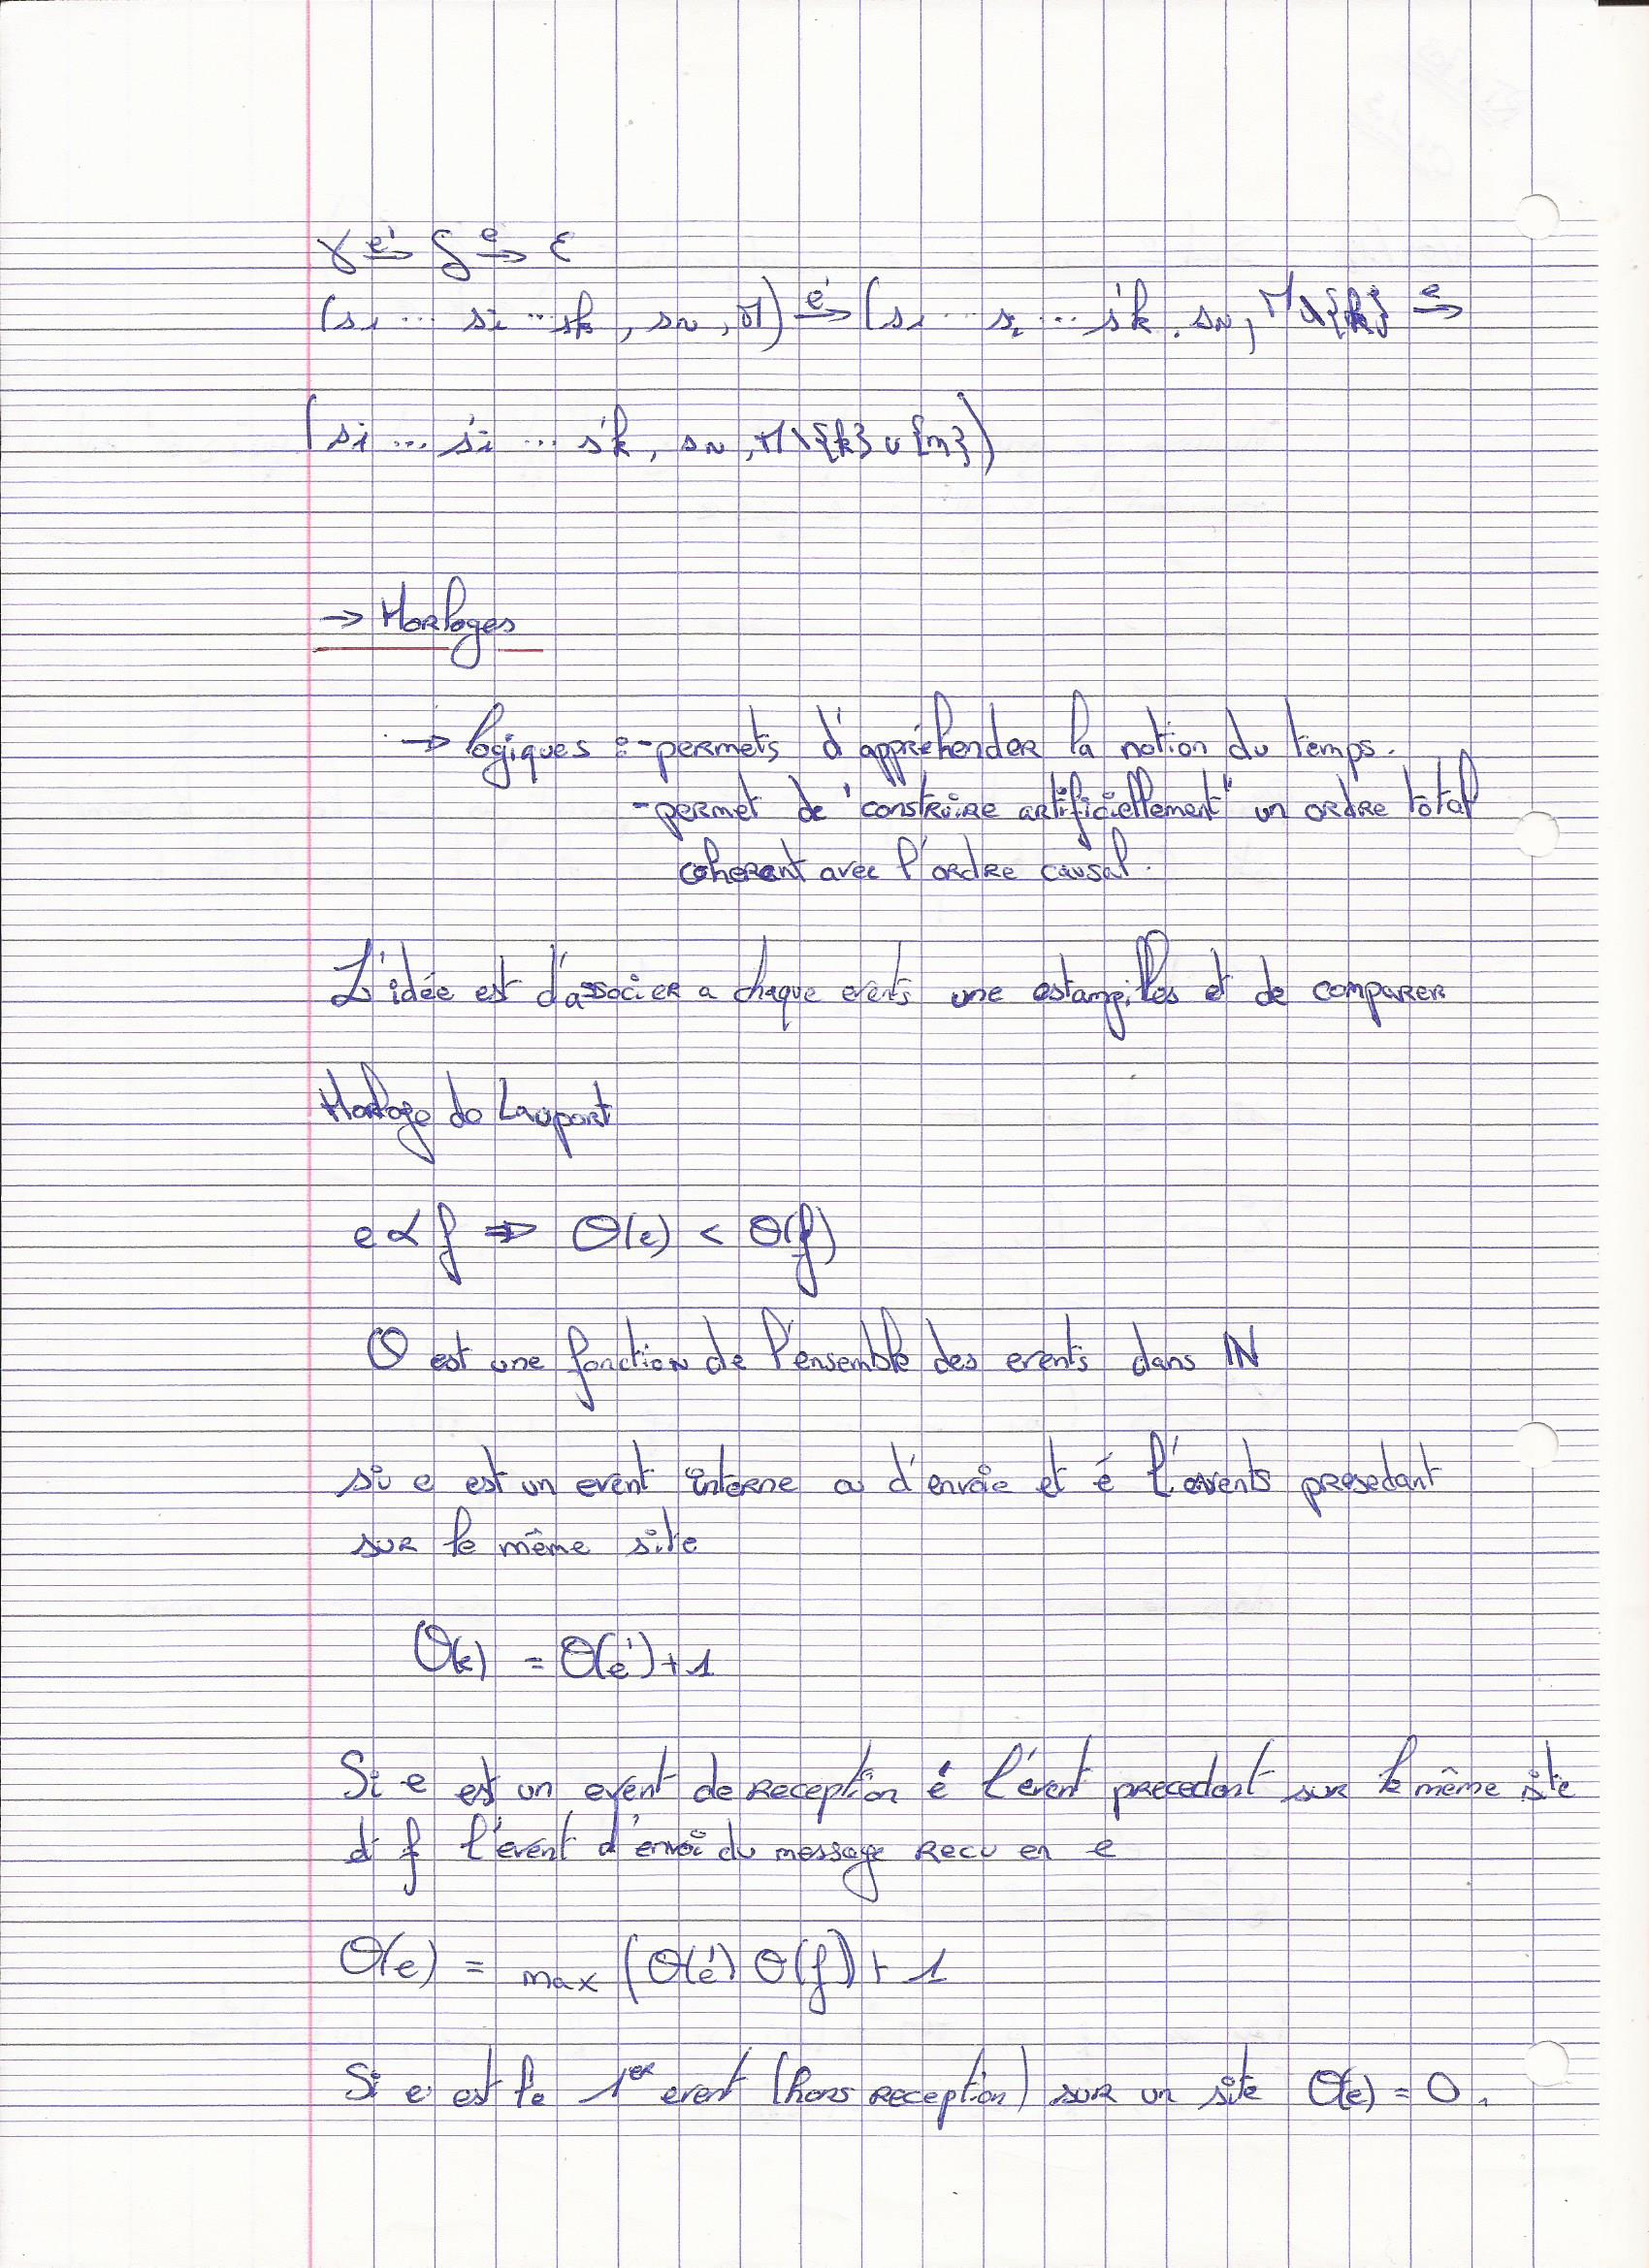 γ e'→ δ e→ ε
(s1 ... si ... sk, sN, M) e'→ (s1 ... si ... s'k, sN, M\{k} e→
(s1 ... s'i ... s'k, sN, M\{k} ∪ {m})
→ Horloges
→ logiques : - permets d'appréhender la notion du temps.
- permet de "construire artificiellement" un ordre total
coherent avec l'ordre causal.
L'idée est d'associer a chaque events une estampilles et de comparer
Horloge de Lamport
e α f ⇒ Θ(e) < Θ(f)
Θ est une fonction de l'ensemble des events dans IN
si e est un event interne ou d'envoie et e' l'events presedant
sur le même site
Θ(e) = Θ(e') + 1
Si e est un event de reception e' l'event precedant sur le même site
et f l'event d'envoi du message recu en e
Θ(e) = max (Θ(e') Θ(f)) + 1
Si e est le 1er event (hors reception) sur un site Θ(e) = 0.